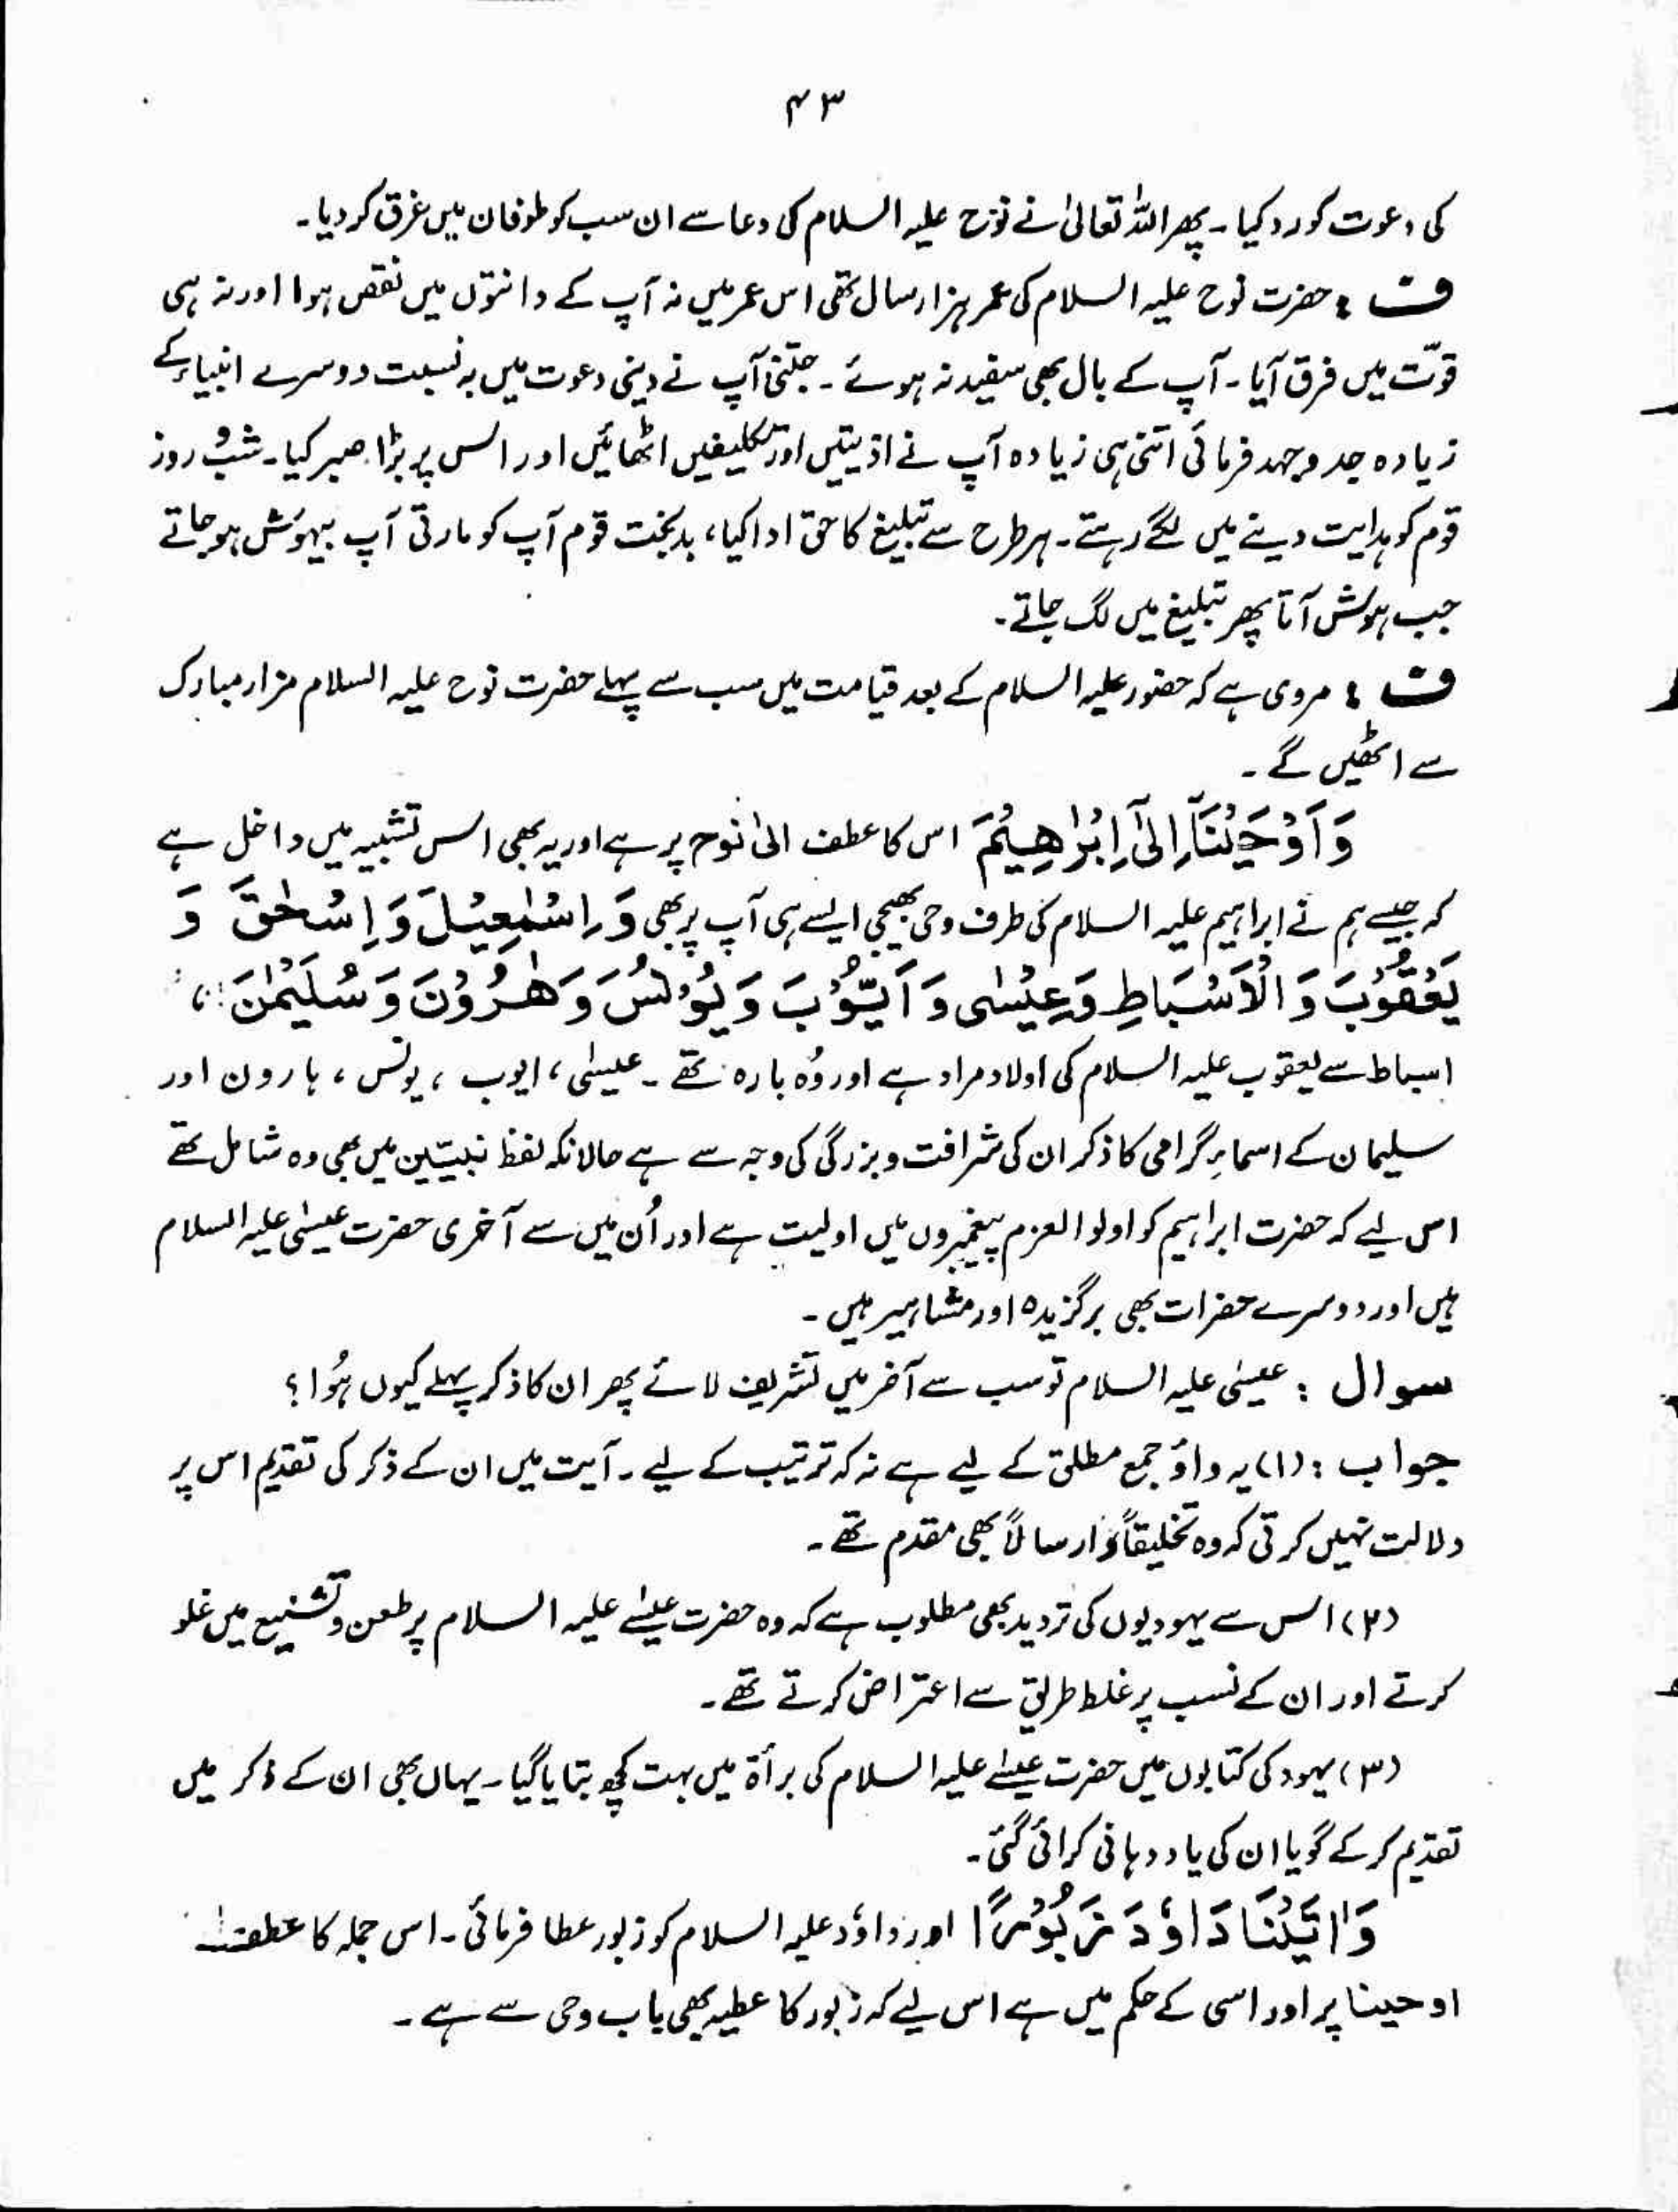 ۴۳
کی دعوت کو رد کیا۔ پھر اللہ تعالیٰ نے نوح علیہ السلام کی دعا سے ان سب کو طوفان میں غرق کر دیا۔
ف : حضرت نوح علیہ السلام کی عمر ہزار سال تھی اس عمر میں نہ آپ کے دانتوں میں نقص ہوا اور نہ ہی
قوّت میں فرق آیا۔ آپ کے بال بھی سفید نہ ہوئے۔ جتنی آپ نے دینی دعوت میں بہ نسبت دوسرے انبیاء کے
زیادہ جد وجہد فرمائی اتنی ہی زیادہ آپ نے اذیتیں اور تکلیفیں اٹھائیں اور اس پر بڑا صبر کیا۔ شب و روز
قوم کو ہدایت دینے میں لگے رہتے۔ ہر طرح سے تبلیغ کا حق ادا کیا، بدبخت قوم آپ کو مارتی آپ بیہوش ہو جاتے
جب ہوش آتا پھر تبلیغ میں لگ جاتے۔
ف : مروی ہے کہ حضور علیہ السلام کے بعد قیامت میں سب سے پہلے حضرت نوح علیہ السلام مزار مبارک
سے اٹھیں گے۔
وَاَوْحَيْنَآ اِلٰٓى اِبْرٰهِيْمَ اس کا عطف الیٰ نوح پر ہے اور یہ بھی اس تشبیہ میں داخل ہے
کہ جیسے ہم نے ابراہیم علیہ السلام کی طرف وحی بھیجی ایسے ہی آپ پر بھی وَ اِسْمٰعِيْلَ وَ اِسْحٰقَ وَ
يَعْقُوْبَ وَ الْاَسْبَاطِ وَ عِيْسٰى وَ اَيُّوْبَ وَ يُوْنُسَ وَ هٰرُوْنَ وَ سُلَيْمٰنَ،
اسباط سے یعقوب علیہ السلام کی اولاد مراد ہے اور وُہ بارہ تھے۔ عیسٰی، ایوب، یونس، ہارون اور
سلیمان کے اسماء گرامی کا ذکر ان کی شرافت و بزرگی کی وجہ سے ہے حالانکہ لفظ نبیّین میں بھی وہ شامل تھے
اس لیے کہ حضرت ابراہیم کو اولوا العزم پیغمبروں میں اولیت ہے اور اُن میں سے آخری حضرت عیسٰی علیہ السلام
ہیں اور دوسرے حضرات بھی برگزیدہ اور مشاہیر ہیں۔
سوال : عیسٰی علیہ السلام تو سب سے آخر میں تشریف لائے پھر ان کا ذکر پہلے کیوں ہُوا؟
جواب : (۱) یہ واؤ جمع مطلق کے لیے ہے نہ کہ ترتیب کے لیے۔ آیت میں ان کے ذکر کی تقدیم اس پر
دلالت نہیں کرتی کہ وہ تخلیقاً و ارسالاً بھی مقدم تھے۔
(۲) اس سے یہودیوں کی تردید بھی مطلوب ہے کہ وہ حضرت عیسٰے علیہ السلام پر طعن و تشنیع میں غلو
کرتے اور ان کے نسب پر غلط طریق سے اعتراض کرتے تھے۔
(۳) یہود کی کتابوں میں حضرت عیسٰے علیہ السلام کی برأۃ میں بہت کچھ بتایا گیا۔ یہاں بھی ان کے ذکر میں
تقدیم کر کے گویا ان کی یاد دہانی کرائی گئی۔
وَاٰتَيْنَا دَاوٗدَ زَبُوْرًا اور داؤد علیہ السلام کو زبور عطا فرمائی۔ اس جملہ کا عطف
اوحینا پر اور اسی کے حکم میں ہے اس لیے کہ زبور کا عطیہ بھی باب وحی سے ہے۔